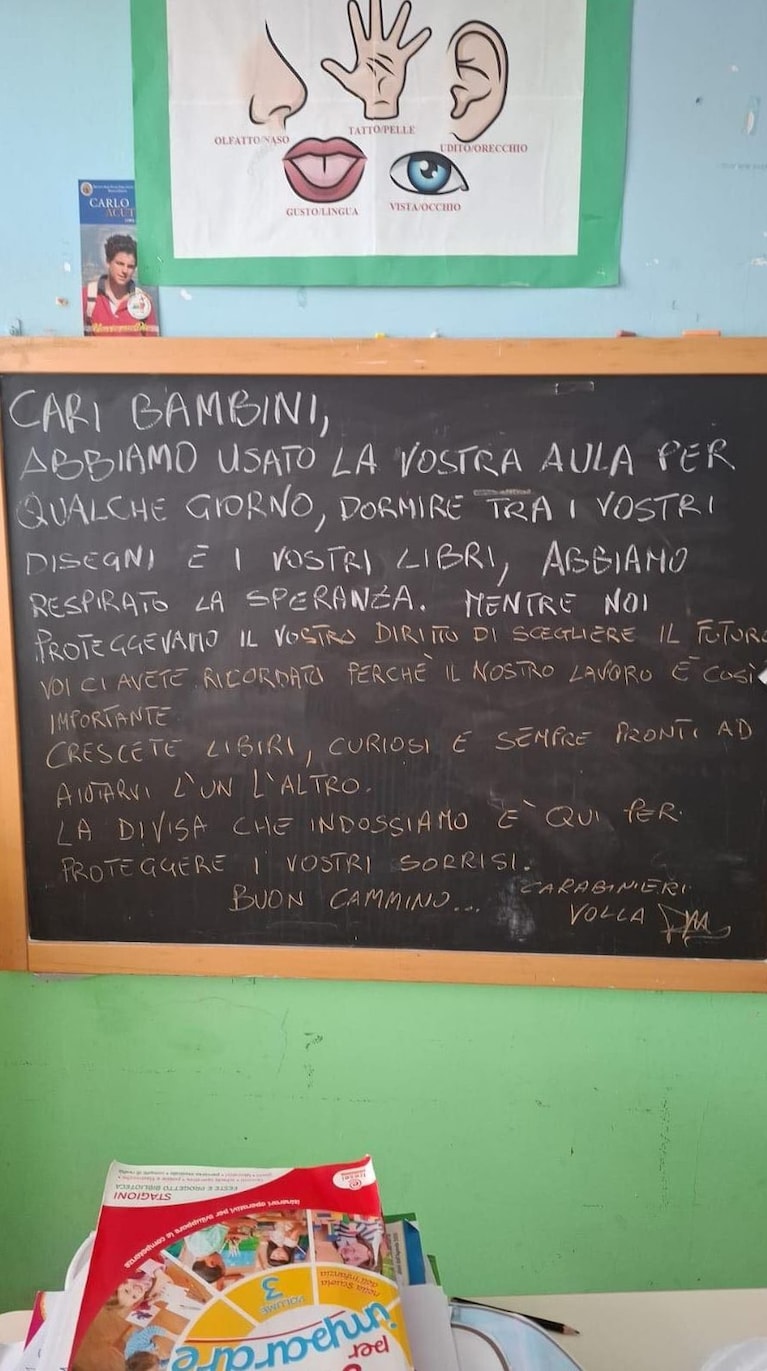 OLFATTO/NASO
TATTO/PELLE
UDITO/ORECCHIO
GUSTO/LINGUA
VISTA/OCCHIO
CARLO
ACUT
CARI BAMBINI,
ABBIAMO USATO LA VOSTRA AULA PER
QUALCHE GIORNO, DORMIRE TRA I VOSTRI
DISEGNI E I VOSTRI LIBRI, ABBIAMO
RESPIRATO LA SPERANZA. MENTRE NOI
PROTEGGEVAMO IL VOSTRO DIRITTO DI SCEGLIERE IL FUTURO
VOI CI AVETE RICORDATO PERCHÈ IL NOSTRO LAVORO È COSÌ
IMPORTANTE
CRESCETE LIBIRI, CURIOSI E SEMPRE PRONTI AD
AIUTARVI L'UN L'ALTRO.
LA DIVISA CHE INDOSSIAMO E' QUI PER
PROTEGGERE I VOSTRI SORRISI.
BUON CAMMINO...
CARABINIERI
VOLLA
STAGIONI
FESTE E PROGETTO BIBLIOTECA
itinerari operativi per sviluppare le competenze
nella Scuola
dell'Infanzia
VOLUME
3
per
imparare